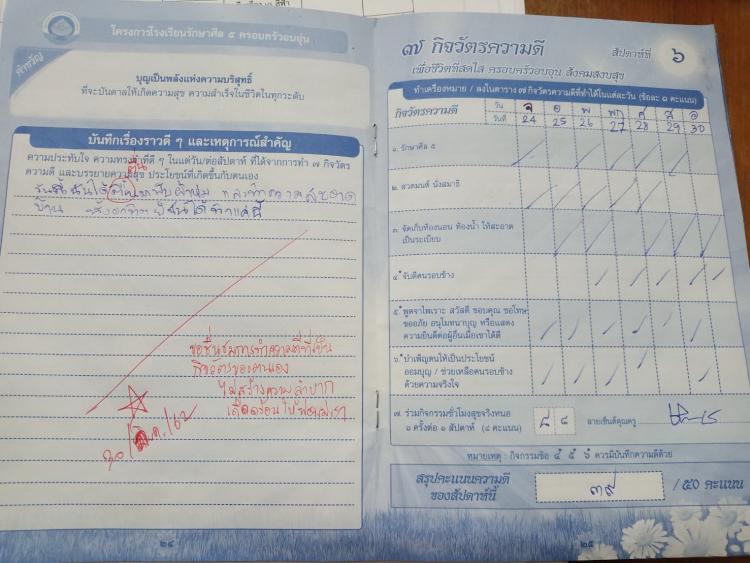 โครงการโรงเรียนรักษาศีล ๕ ครอบครัวอบอุ่น
คำขวัญ
บุญเป็นพลังแห่งความบริสุทธิ์
ที่จะบันดาลให้เกิดความสุข ความสำเร็จในชีวิตในทุกระดับ
บันทึกเรื่องราวดี ๆ และเหตุการณ์สำคัญ
ความประทับใจ ความทรงจำที่ดี ๆ ในแต่วัน/ต่อสัปดาห์ ที่ได้จากการทำ ๗ กิจวัตร
ความดี และบรรยายความสุข ประโยชน์ที่เกิดขึ้นกับตนเอง
ตื่น
วันนี้ฉันได้ มาพับผ้าห่ม ความสะอาด
บ้าน ฉันได้
ขอชื่นชมการทำความดีที่เป็น
กิจวัตรของตนเอง
ไม่สร้างความลำบาก
เดือดร้อนให้พ่อแม่เรา
๓๐/มิ.ค./๖๒
๒๔
๗ กิจวัตรความดี
สัปดาห์ที่ ๖
เพื่อชีวิตที่สดใส ครอบครัวอบอุ่น สังคมสงบสุข
ทำเครื่องหมาย / ลงในตาราง ๗ กิจวัตรความดีที่ทำได้ในแต่ละวัน (ข้อละ ๑ คะแนน)
กิจวัตรความดี วัน จ อ พ พฤ ศ ส อ
วันที่ 24 25 26 27 28 29 30
๑. รักษาศีล ๕
๒. สวดมนต์ นั่งสมาธิ
๓. จัดเก็บห้องนอน ห้องน้ำ ให้สะอาด
เป็นระเบียบ
๔. จับดีคนรอบข้าง
๕. พูดจาไพเราะ สวัสดี ขอบคุณ ขอโทษ
ขออภัย อนุโมทนาบุญ หรือแสดง
ความยินดีต่อผู้อื่นเมื่อเขาได้ดี
๖. บำเพ็ญตนให้เป็นประโยชน์
ออมบุญ / ช่วยเหลือคนรอบข้าง
ด้วยความจริงใจ
๗. ร่วมกิจกรรมชั่วโมงสุขจริงหนอ
๑ ครั้งต่อ ๑ สัปดาห์ (๘ คะแนน)
ลายเซ็นต์คุณครู
หมายเหตุ : กิจกรรมข้อ ๔ ๕ ๖ ควรมีบันทึกความดีด้วย
สรุปคะแนนความดี
ของสัปดาห์นี้
๓๙ / ๕๐ คะแนน
๒๕